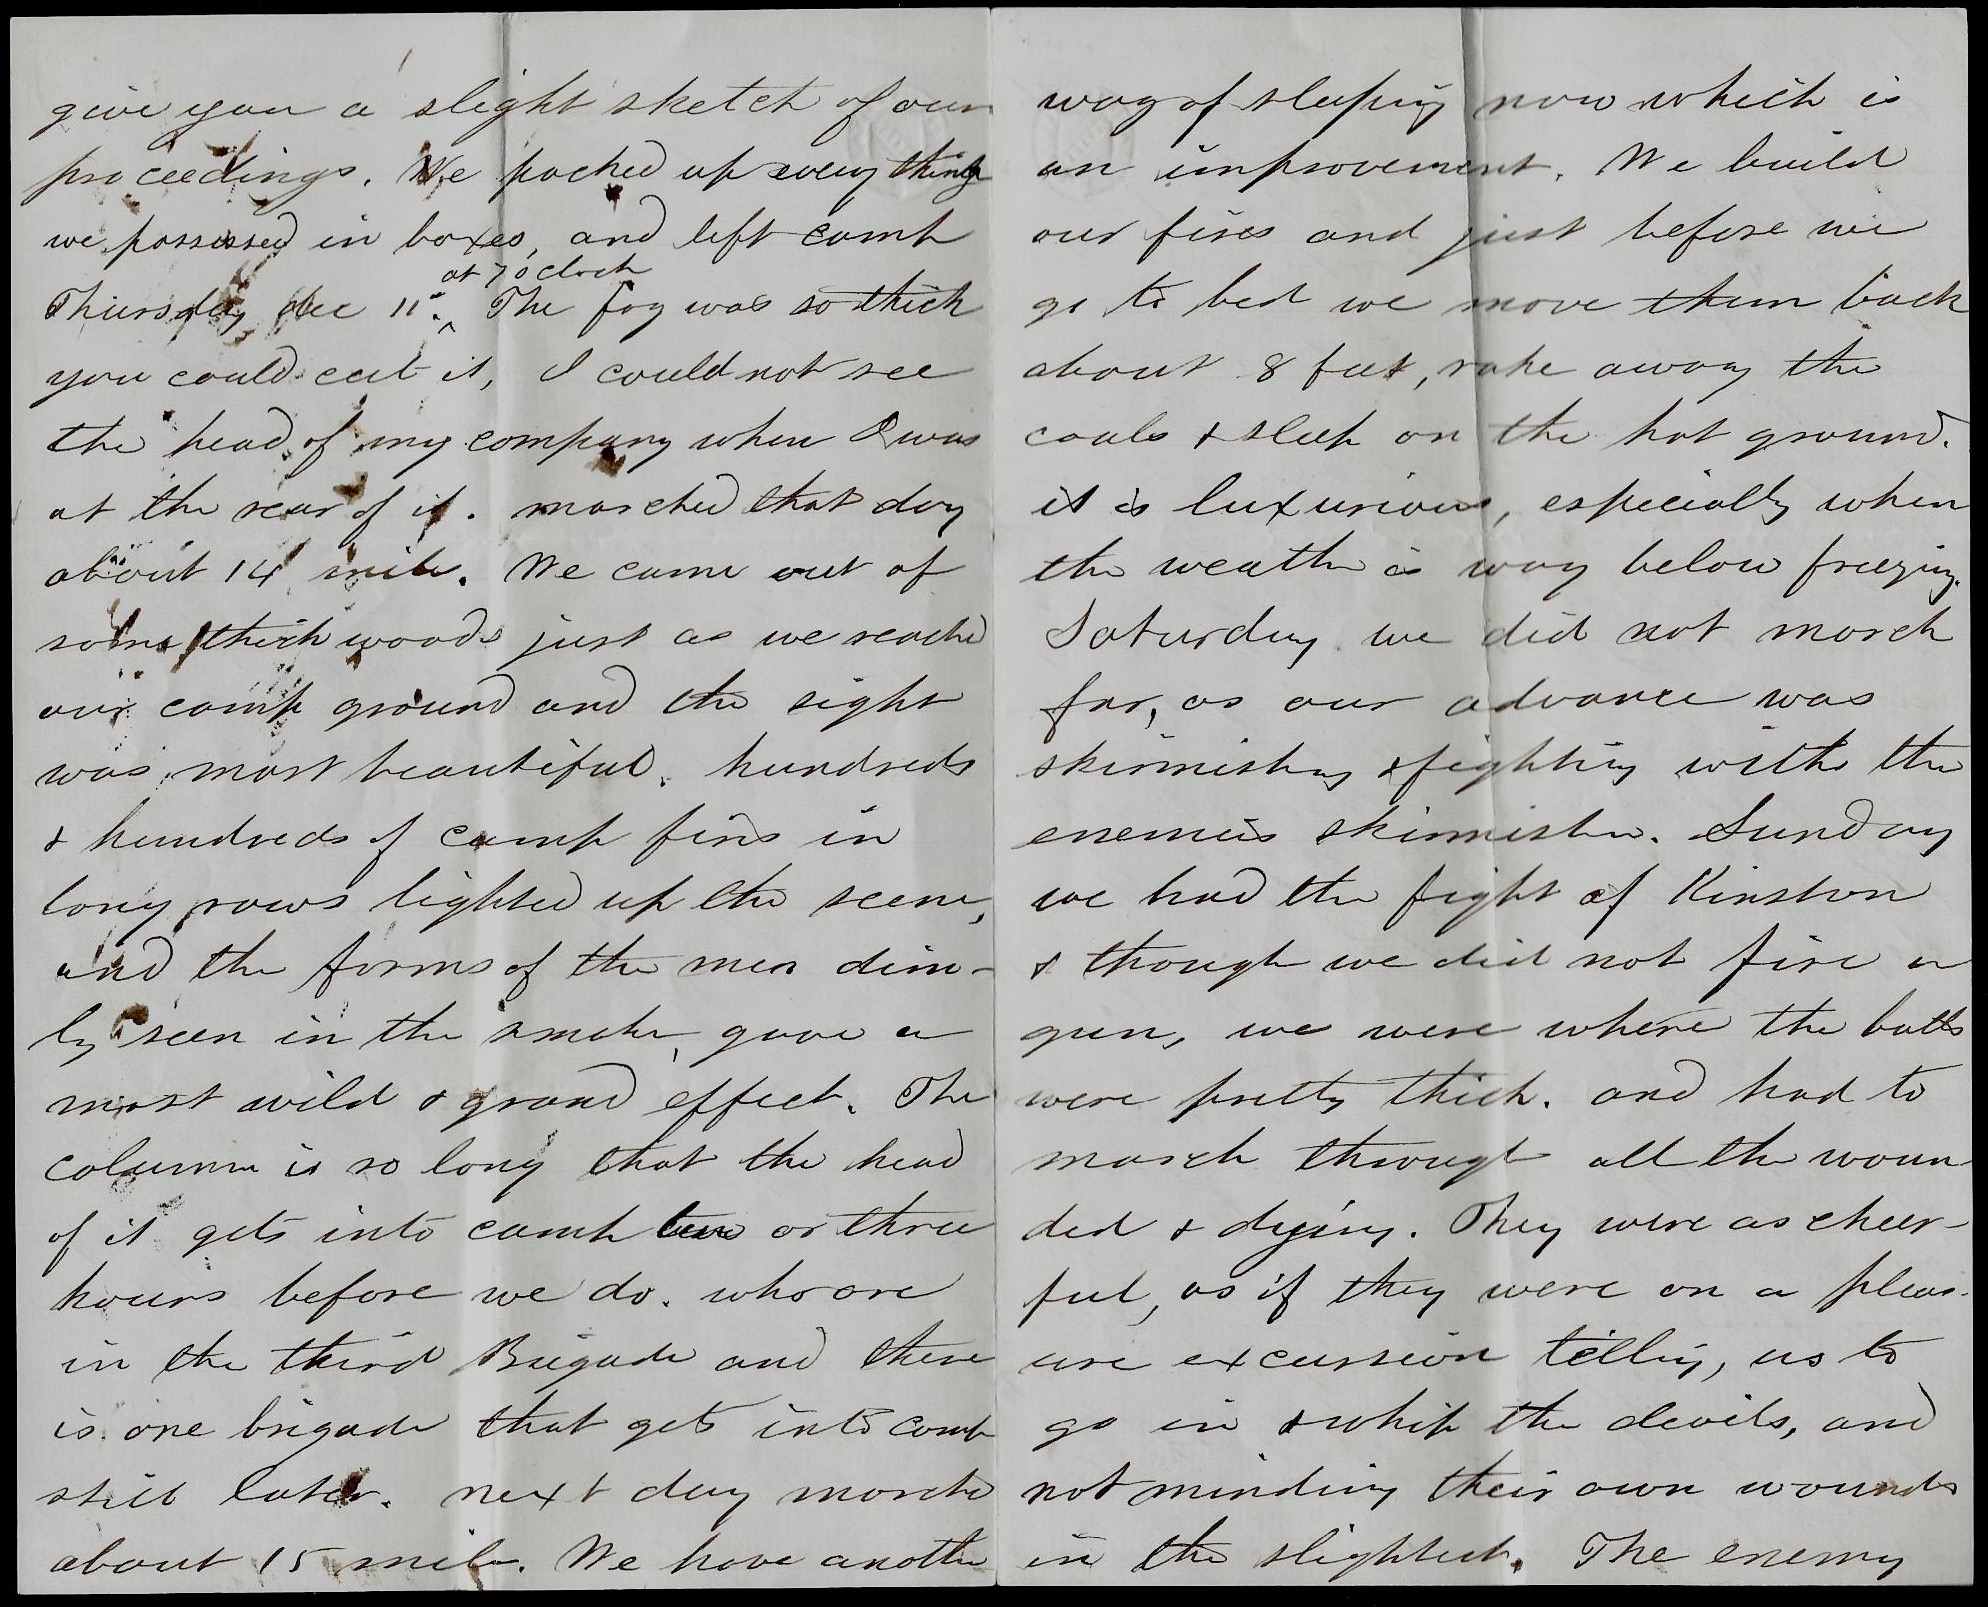 give you a slight sketch of our
proceedings. We packed up every thing
we possessed in boxes, and left camp
at 7 oclock
Thursday Dec 11th. ^ The fog was so thick
you could cut it, I could not see
the head of my company when I was
at the rear of it. marched that day
about 14 miles. We came out of
some thick woods just as we reached
our camp ground and the sight
was most beautiful. hundreds
& hundreds of camp fires in
long rows lighted up the scene,
and the forms of the men dim-
ly seen in the smoke, gave a
most wild & grand effect. The
column is so long that the head
of it gets into camp two or three
hours before we do. who are
in the third Brigade and there
is one brigade that gets into camp
still later. next day marched
about 15 miles. We have another
way of sleeping now which is
an improvement. We build
our fires and just before we
go to bed we move them back
about 8 feet, rake away the
coals & sleep on the hot ground.
it is luxurious, especially when
the weather is way below freezing.
Saturday we did not march
far, as our advance was
skirmishing & fighting with the
enemies skirmishers. Sunday
we had the fight of Kinston
& though we did not fire a
gun, we were where the balls
were pretty thick. and had to
march through all the woun
ded & dying. They were as cheer-
ful, as if they were on a pleas-
ure excursion telling, us to
go in & whip the devils, and
not minding their own wounds
in the slightest. The enemy